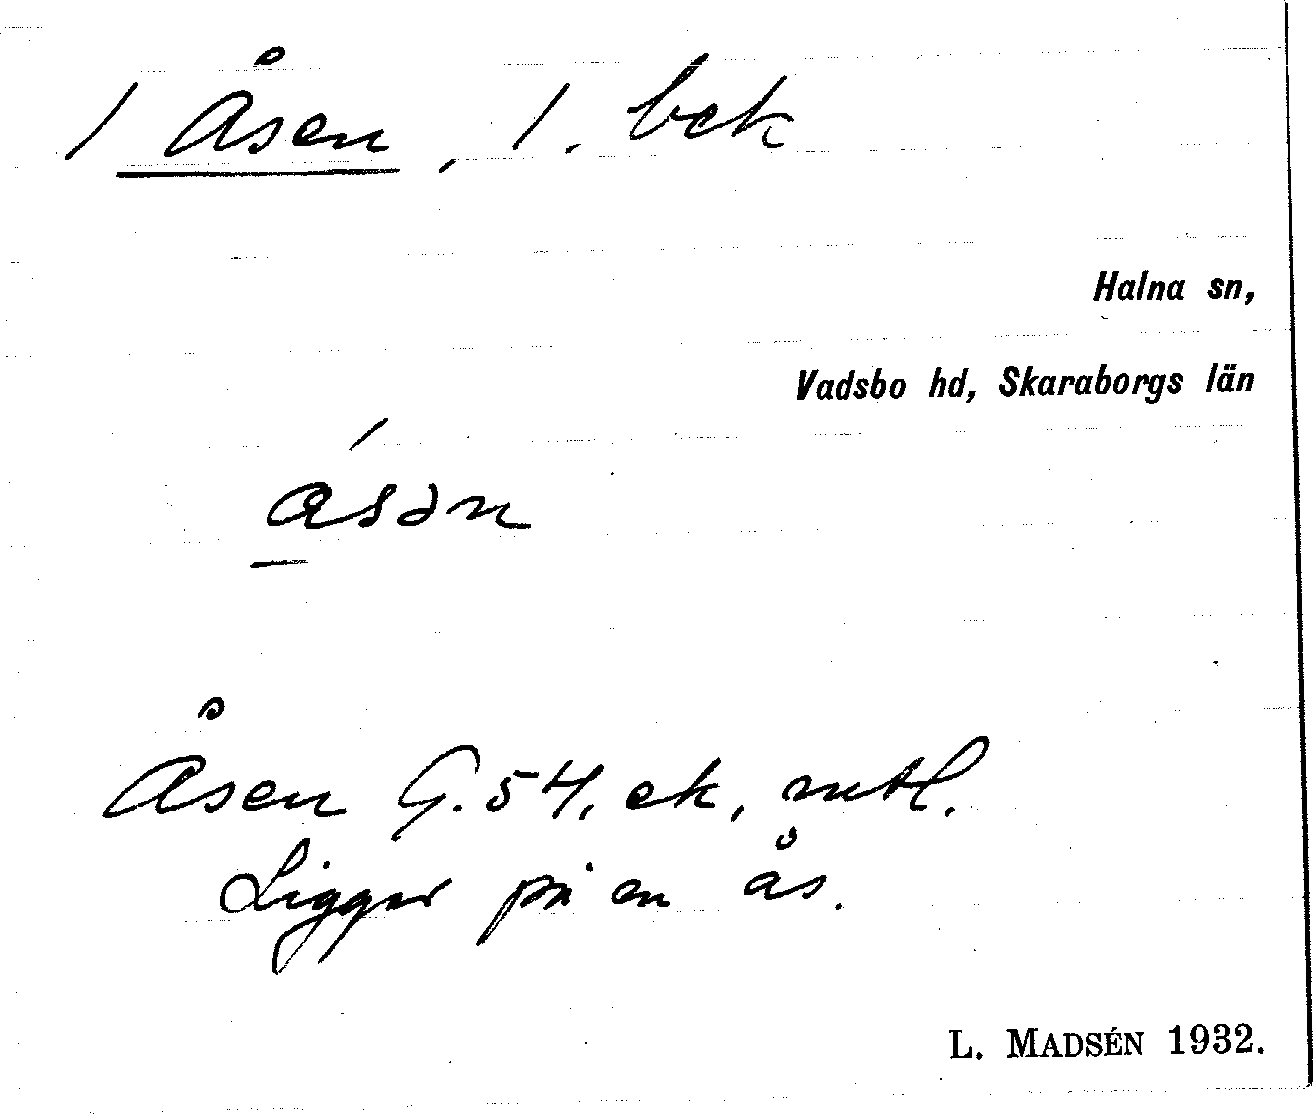 / Åsen, 1. bek
Halna sn,
Vadsbo hd, Skaraborgs län
åsən
Åsen G. 54, ek, mtl.
Ligger på en ås.
L. MADSÉN 1932.